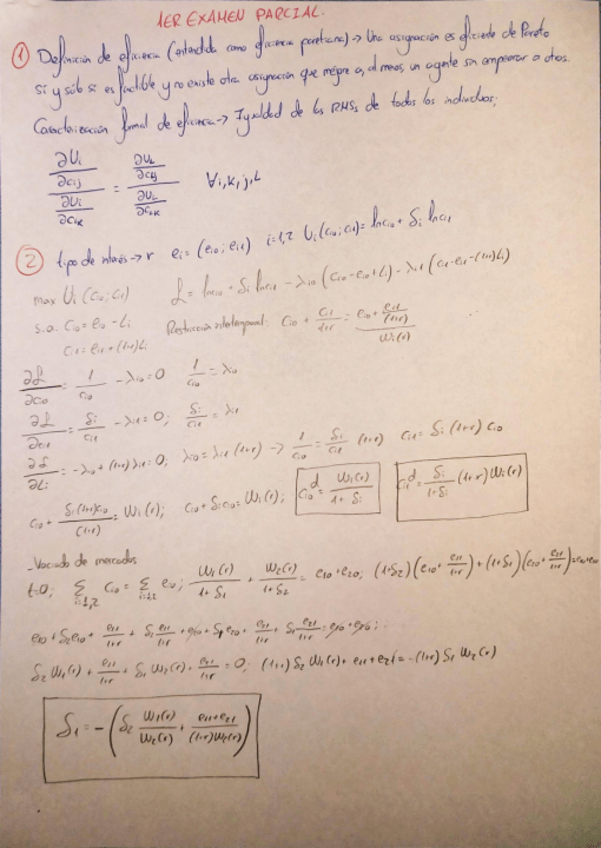 1ER EXAMEN PARCIAL.
① Definición de eficiencia (entendida como eficiencia paretiana) → Una asignación es eficiente de Pareto
si y sólo si es factible y no existe otra asignación que mejore a, al menos, un agente sin empeorar a otros.
Caracterización formal de eficiencia → Igualdad de las RMSs de todos los individuos;
(∂Ui/∂cij)/(∂Ui/∂cik) = (∂UL/∂cLj)/(∂UL/∂cLk) ∀i,k,j,L
② tipo de interés → r ei = (ei0; ei1) i=1,2 Ui(ci0; ci1) = ln ci0 + δi ln ci1
max Ui (c0; c1) L = ln ci0 + δi ln ci1 - λi0 (ci0 - ei0 + Li) - λi1 (ci1 - ei1 - (1+r)Li)
s.a. ci0 = ei0 - Li Restricción intertemporal: ci0 + ci1/(1+r) = ei0 + ei1/(1+r)
ci1 = ei1 + (1+r)Li Wi(r)
∂L/∂ci0 = 1/ci0 - λi0 = 0 1/ci0 = λi0
∂L/∂ci1 = δi/ci1 - λi1 = 0; δi/ci1 = λi1
∂L/∂Li = -λi0 + (1+r)λi1 = 0; λi0 = λi1 (1+r) → 1/ci0 = δi/ci1 (1+r) ci1 = δi (1+r) ci0
ci0 + δi(1+r)ci0/(1+r) = Wi(r); ci0 + δi ci0 = Wi(r); ci0^d = Wi(r)/(1+δi) ci1^d = δi/(1+δi) (1+r) Wi(r)
- Vaciado de mercados
t=0; Σ i=1,2 ci0 = Σ i=1,2 ei0; W1(r)/(1+δ1) + W2(r)/(1+δ2) = e10 + e20; (1+δ2)(e10 + e11/(1+r)) + (1+δ1)(e20 + e21/(1+r)) = e10+e20
e10 + δ2 e10 + e11/(1+r) + δ2 e11/(1+r) + e20 + δ1 e20 + e21/(1+r) + δ1 e21/(1+r) = e10 + e20;
δ2 W1(r) + e11/(1+r) + δ1 W2(r) + e21/(1+r) = 0; (1+r) δ2 W1(r) + e11 + e21 = -(1+r) δ1 W2(r)
δ1 = -(δ2 W1(r)/W2(r) + (e11+e21)/((1+r)W2(r)))